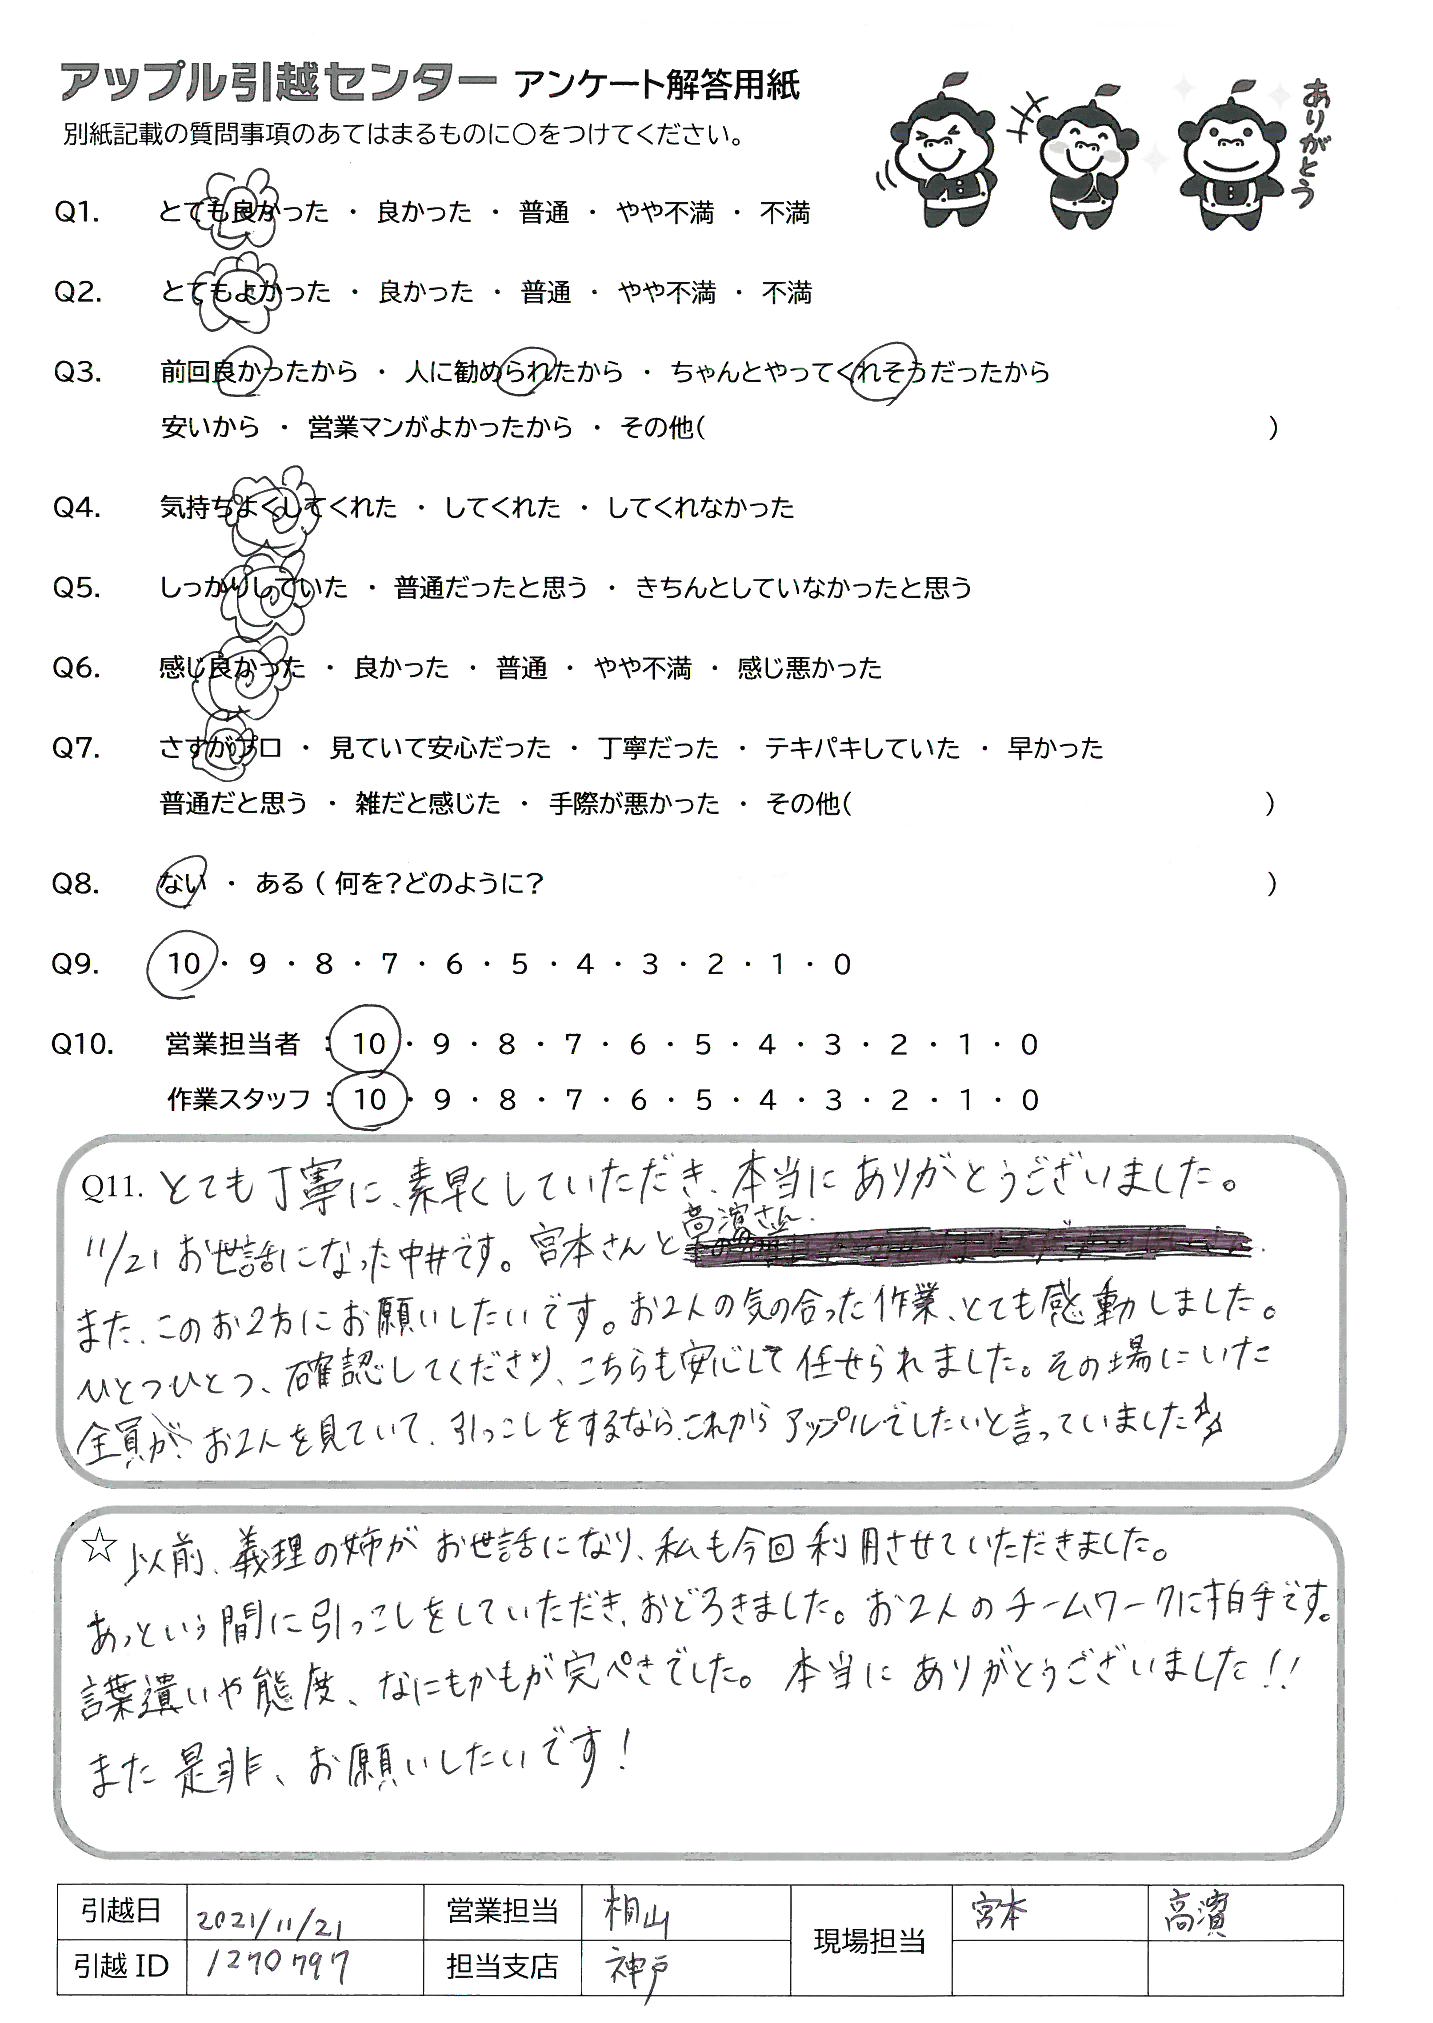 アップル引越センター アンケート解答用紙
別紙記載の質問事項のあてはまるものに〇をつけてください。
ありがとう
Q1. とても良かった ・ 良かった ・ 普通 ・ やや不満 ・ 不満
Q2. とてもよかった ・ 良かった ・ 普通 ・ やや不満 ・ 不満
Q3. 前回良かったから ・ 人に勧められたから ・ ちゃんとやってくれそうだったから
安いから ・ 営業マンがよかったから ・ その他( )
Q4. 気持ちよくしてくれた ・ してくれた ・ してくれなかった
Q5. しっかりしていた ・ 普通だったと思う ・ きちんとしていなかったと思う
Q6. 感じ良かった ・ 良かった ・ 普通 ・ やや不満 ・ 感じ悪かった
Q7. さすがプロ ・ 見ていて安心だった ・ 丁寧だった ・ テキパキしていた ・ 早かった
普通だと思う ・ 雑だと感じた ・ 手際が悪かった ・ その他( )
Q8. ない ・ ある ( 何を?どのように? )
Q9. 10 ・ 9 ・ 8 ・ 7 ・ 6 ・ 5 ・ 4 ・ 3 ・ 2 ・ 1 ・ 0
Q10. 営業担当者 : 10 ・ 9 ・ 8 ・ 7 ・ 6 ・ 5 ・ 4 ・ 3 ・ 2 ・ 1 ・ 0
作業スタッフ : 10 ・ 9 ・ 8 ・ 7 ・ 6 ・ 5 ・ 4 ・ 3 ・ 2 ・ 1 ・ 0
Q11. とても丁寧に、素早くしていただき、本当にありがとうございました。
11/21 お世話になった中井です。宮本さんと高濵さん.
また、このお2方にお願いしたいです。お2人の気の合った作業、とても感動しました。
ひとつひとつ、確認してくださり、こちらも安心して任せられました。その場にいた
全員が、お2人を見ていて、引っこしをするなら、これからアップルでしたいと言っていました☆
☆以前、義理の姉がお世話になり、私も今回利用させていただきました。
あっという間に引っこしをしていただき、おどろきました。お2人のチームワークに拍手です。
言葉遣いや態度、なにもかもが完ぺきでした。本当にありがとうございました!!
また是非、お願いしたいです!
引越日 2021/11/21 営業担当 桐山 現場担当 宮本 高濵
引越ID 1270797 担当支店 神戸